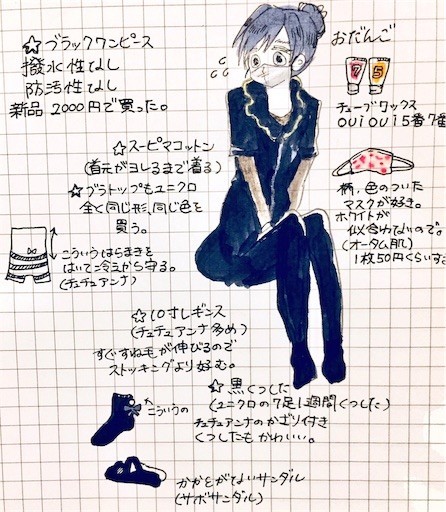 ☆ブラックワンピース
撥水性なし
防活性なし
新品 2000円で買った。
おだんご
7
5
チューブワックス
OUIOUI 5番7番
☆スーピマコットン
(首元がヨレるまで着る)
☆ブラトップもユニクロ
全く同じ形、同じ色を
買う。
柄、色のついた
マスクが好き。
ホワイトが
似合わないので。
(オータム肌)
1枚50円くらいす
こういうはらまきを
はいて冷えから守る。
(チュチュアンナ)
☆10寸しギンス
(チュチュアンナ多め)
すぐすね毛が伸びるので
ストッキングより好む。
☆黒くつした
(ユニクロの7足1週間くつした)
チュチュアンナのかざり付き
くつしたもかわいい。
こういうの
かかとがないサンダル
(サボサンダル)